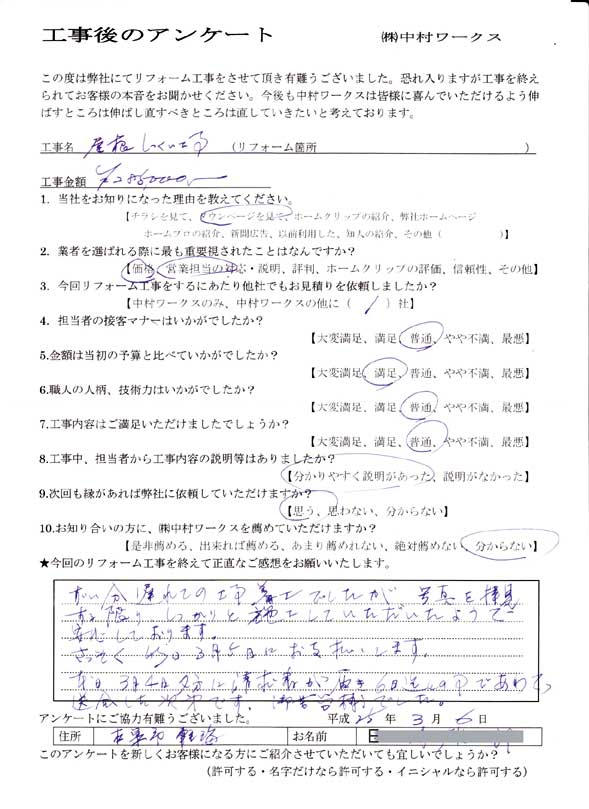 工事後のアンケート ㈱中村ワークス
この度は弊社にてリフォーム工事をさせて頂き有難うございました。恐れ入りますが工事を終え
られてお客様の本音をお聞かせください。今後も中村ワークスは皆様に喜んでいただけるよう伸
ばすところは伸ばし直すべきところは直していきたいと考えております。
工事名 屋根しっくい工事 (リフォーム箇所 )
工事金額
1. 当社をお知りになった理由を教えてください。
【チラシを見て、タウンページを見て、ホームクリップの紹介、弊社ホームページ
ホームプロの紹介、新聞広告、以前利用した、知人の紹介、その他 ( )】
2. 業者を選ばれる際に最も重要視されたことはなんですか?
【価格、営業担当の対応・説明、評判、ホームクリップの評価、信頼性、その他】
3. 今回リフォーム工事をするにあたり他社でもお見積りを依頼しましたか?
【中村ワークスのみ、中村ワークスの他に ( 1 ) 社】
4. 担当者の接客マナーはいかがでしたか?
【大変満足、満足、普通、やや不満、最悪】
5.金額は当初の予算と比べていかがでしたか?
【大変満足、満足、普通、やや不満、最悪】
6.職人の人柄、技術力はいかがでしたか?
【大変満足、満足、普通、やや不満、最悪】
7.工事内容はご満足いただけましたでしょうか?
【大変満足、満足、普通、やや不満、最悪】
8.工事中、担当者から工事内容の説明等はありましたか?
【分かりやすく説明があった、説明がなかった】
9.次回も縁があれば弊社に依頼していただけますか?
【思う、思わない、分からない】
10.お知り合いの方に、㈱中村ワークスを薦めていただけますか?
【是非薦める、出来れば薦める、あまり薦めれない、絶対薦めない、分からない】
★今回のリフォーム工事を終えて正直なご感想をお願いいたします。
ずい分遅れての工事着工でしたが 写真を拝見
する限りしっかりと施工していただいたようで
安心しております。
さっそく 3月5日にお支払いします。
3月4日夕方に請求書が届き
送金した次第です。
アンケートにご協力有難うございました。 平成 25 年 3 月 6 日
住所 お名前
このアンケートを新しくお客様になる方にご紹介させていただいても宜しいでしょうか?
(許可する・名字だけなら許可する・イニシャルなら許可する)